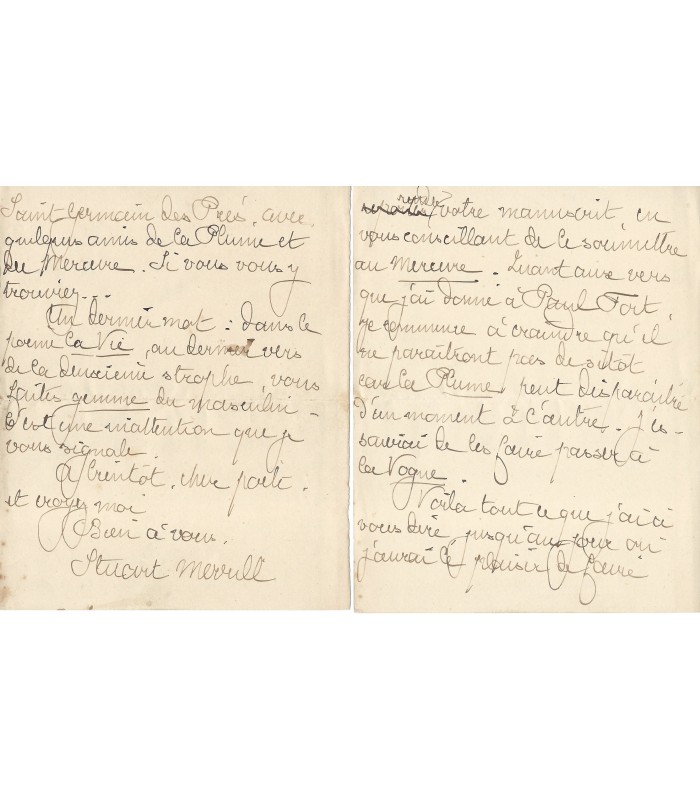 Saint Germain des Prés, avec
quelques amis de la Plume et
du Mercure. Si vous vous y
trouviez...
Un dernier mot : dans le
poème La Vie, au dernier vers
de la deuxième strophe, vous
faites gemme du masculin -
C'est une inattention que je
vous signale.
A bientôt, cher poète,
et croyez moi
Bien à vous.
Stuart Merrill
rendre votre manuscrit en
vous conseillant de le soumettre
au Mercure. Quant aux vers
que j'ai donné à Paul Fort,
je commence à craindre qu'il
ne paraîtront pas de sitôt
car La Plume peut disparaître
d'un moment à l'autre. J'es-
saierai de les faire passer à
la Vogue.
Voilà tout ce que j'ai à
vous dire, jusqu'au jour où
j'aurai le plaisir de faire